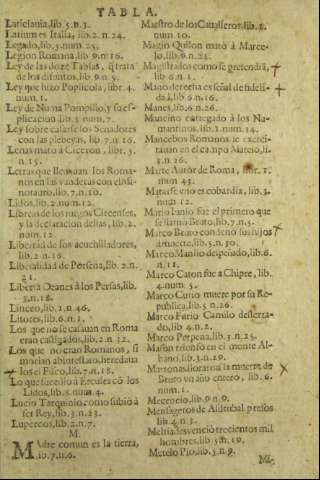 TABLA.
Laticlauia, lib. 5. n. 3.
Latium es Italia, lib. 2. n. 24.
Legado, lib. 5. num. 25.
Legion Romana, lib. 9. n. 16.
Ley de las doze Tablas, q̃ trata
de los difuntos, lib. 9. n. 5.
Ley que hizo Poplicola, libr. 4.
num. 1.
Ley de Numa Pompilio, y su ex-
plicacion, lib. 3. num. 7.
Ley sobre casarse los Senadores
con las plebeyas, lib. 7. n. 16.
Lenas mato à Ciceron, libr. 3.
n. 15.
Letras que lleuauan los Roma-
nos en las vanderas con el Si-
notauro, lib. 7. n. 10.
Lidos, lib. 2. num. 12.
Libreas de los juegos Circenses,
y la declaracion dellas, lib. 2.
num. 12.
Libertad de los acuchilladores,
lib. 2. n. 16.
Liberalidad de Porsena, lib. 2. n.
21.
Liberta Deanes à los Persas, lib.
3. n. 18.
Linceo, lib. 1. n. 46.
Litores, lib. 6. n. 1.
Los que no se casauan en Roma
eran castigados, lib. 2. n. 32.
Los que no eran Romanos, si
morian abintestato, heredaua
los el Fisco, lib. 7. n. 18.
Lo que sucedio à Ercules cõ los
Lidos, lib. 3. num. 4.
Lucio Tarquinio como subiò à
ser Rey, lib. 3. n. 23.
Lupercos, lib. 2. n. 7.
M.
MAdre comun es la tierra,
lib. 7. n. 6.
Maestro de los Caualleros, lib. 2.
num. 10.
Magio Quilon matò à Marce-
lo, lib. 9. n. 23.
Magistrados como se pretendiã,
lib. 6. n. 1.
Mano derecha es señal de fideli-
dad, lib. 6. n. 16.
Manes, lib. 6. n. 26.
Mancino entregado à los Nu-
mantinos, lib. 2. num. 14.
Mancebos Romanos se exerci-
tauan en el campo Marcio, li.
3. n. 26.
Marte Autor de Roma, libr. 1.
num. 43.
Matarse vno es cobardia, lib. 3.
num. 12.
Mario Iunio fue el primero que
se llamò Bruto, lib. 7. n. 5.
Marco Bruto condenò sus hijos
à muerte, lib. 5. n. 30.
Marco Manlio despeñado, lib. 6.
n. 11.
Marco Caton fue a Chipre, lib.
4. num. 5.
Marco Curio muere por su Re-
publica, lib. 5. n. 26.
Marco Furio Camilo desterra-
do, lib. 4. n. 2.
Marco Perpena, lib. 3. n. 25.
Mason triunfò en el monte Al-
bano, lib. 3. n. 29.
Matronas lloraron la muerte de
Bruto vn año entero, lib. 6.
num. 1.
Mecencio, lib. 9. n. 9.
Mensageros de Asdrubal presos
lib. 4. n. 3.
Meltia desvenciò trecientos mil
hombres, lib. 5. n. 19.
Metelo Pio, lib. 5. n. 9.
Me-